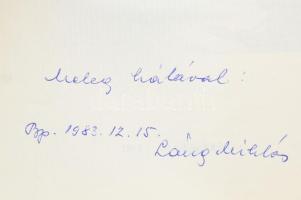 Meleg hálával:
Bp. 1983. 12. 15.
Láng Miklós